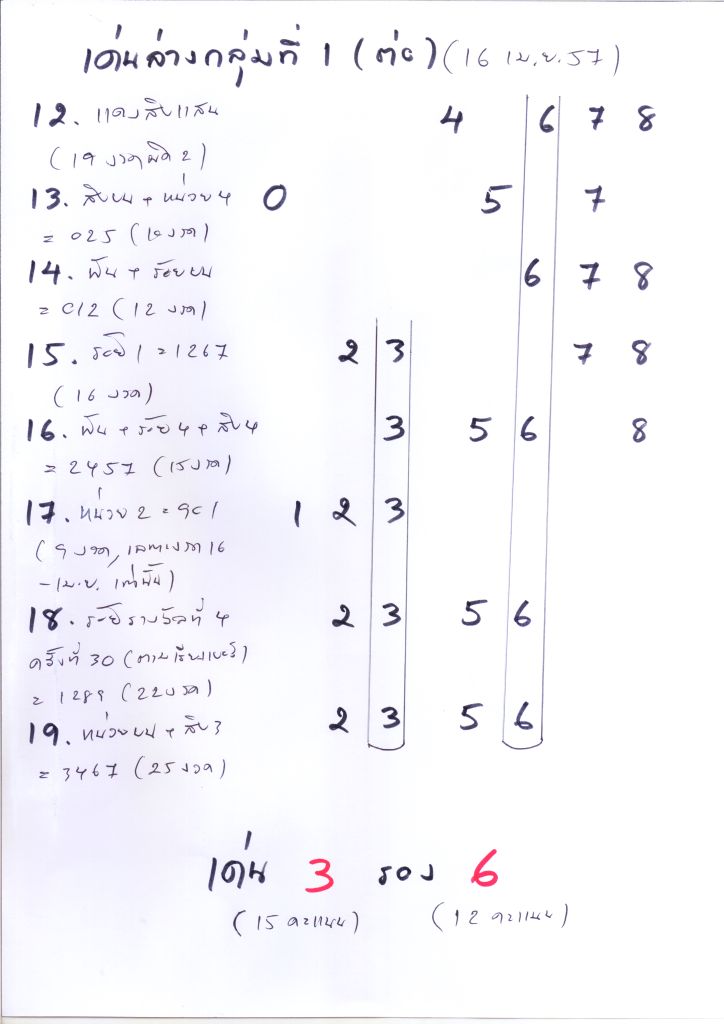 เด่นล่างกลุ่มที่ 1 (ต่อ) (16 เม.ย. 57)
12. แดงสิบแสน 4 6 7 8
(19 งวดผิด 2)
13. สิบบน + หน่วย 4 0 5 7
= 025 (12 งวด)
14. พัน + ร้อยบน 6 7 8
= 012 (12 งวด)
15. 1 = 1267 2 3 7 8
(16 งวด)
16. พัน + ร้อย 4 + สิบ 4 3 5 6 8
= 2457 (15 งวด)
17. หน่วย 2 = 901 1 2 3
(9 งวด, เฉพาะงวด 16
- เม.ย. เท่านั้น)
18. รางวัลที่ 4 2 3 5 6
ครั้งที่ 30 (ตามเรียงเบอร์)
= 1289 (22 งวด)
19. หน่วยบน + สิบ 3 2 3 5 6
= 3467 (25 งวด)
เด่น 3 รอง 6
(15 คะแนน) (12 คะแนน)